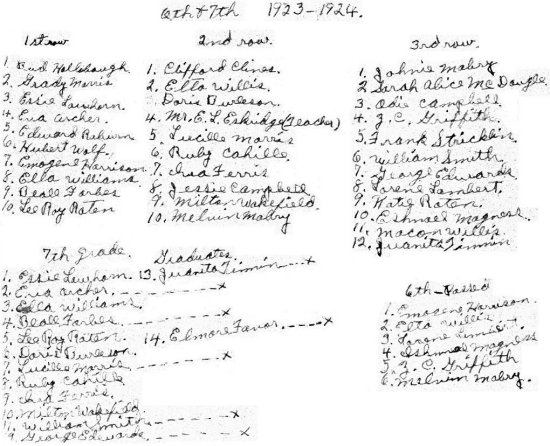 6th & 7th 1923-1924.
1st row
1. Bud Hollabaugh
2. Grady Morris
3. Essie Lawhorn
4. Eva Archer.
5. Edward Ruhurn
6. Hubert Wolf.
7. Emogene Harrison
8. Ella Williams
9. Beall Forbes
10. Lee Roy Raten
2nd row.
1. Clifford Clines.
2. Etta Willis.
3. Doris Burleson.
4. Mr. E. L. Eskridge (Teacher)
5. Lucille Morris
6. Ruby Cahille
7. Iva Ferris
8. Jessie Campbell
9. Milton Wakefield.
10. Melvin Mabry
3rd row.
1. Johnie Mabry
2. Sarah Alice McDougle
3. Odie Campbell
4. J. C. Griffith
5. Frank Stricklin
6. William Smith
7. George Edwards
8. Lorene Lambert.
9. Kate Raten.
10. Eshmael Magness.
11. Macon Willis.
12. Juanita Timmin
7th grade. Graduates.
1. Essie Lawhorn.
2. Eva Archer. x
3. Ella Williams.
4. Beall Forbes x
5. Lee Roy Raten
6. Doris Burleson.
7. Lucille Morris x
8. Ruby Cahille
9. Iva Ferris.
10. Milton Wakefield. x
11. William Smith x
9. George Edwards. x
13. Juanita Timmin x
14. Elmore Favor. x
6th - Passed
1. Emogene Harrison.
2. Etta Willis.
3. Lorene Limbert.
4. Ishmael Magness
5. J. C. Griffith
6. Melvin Mabry.